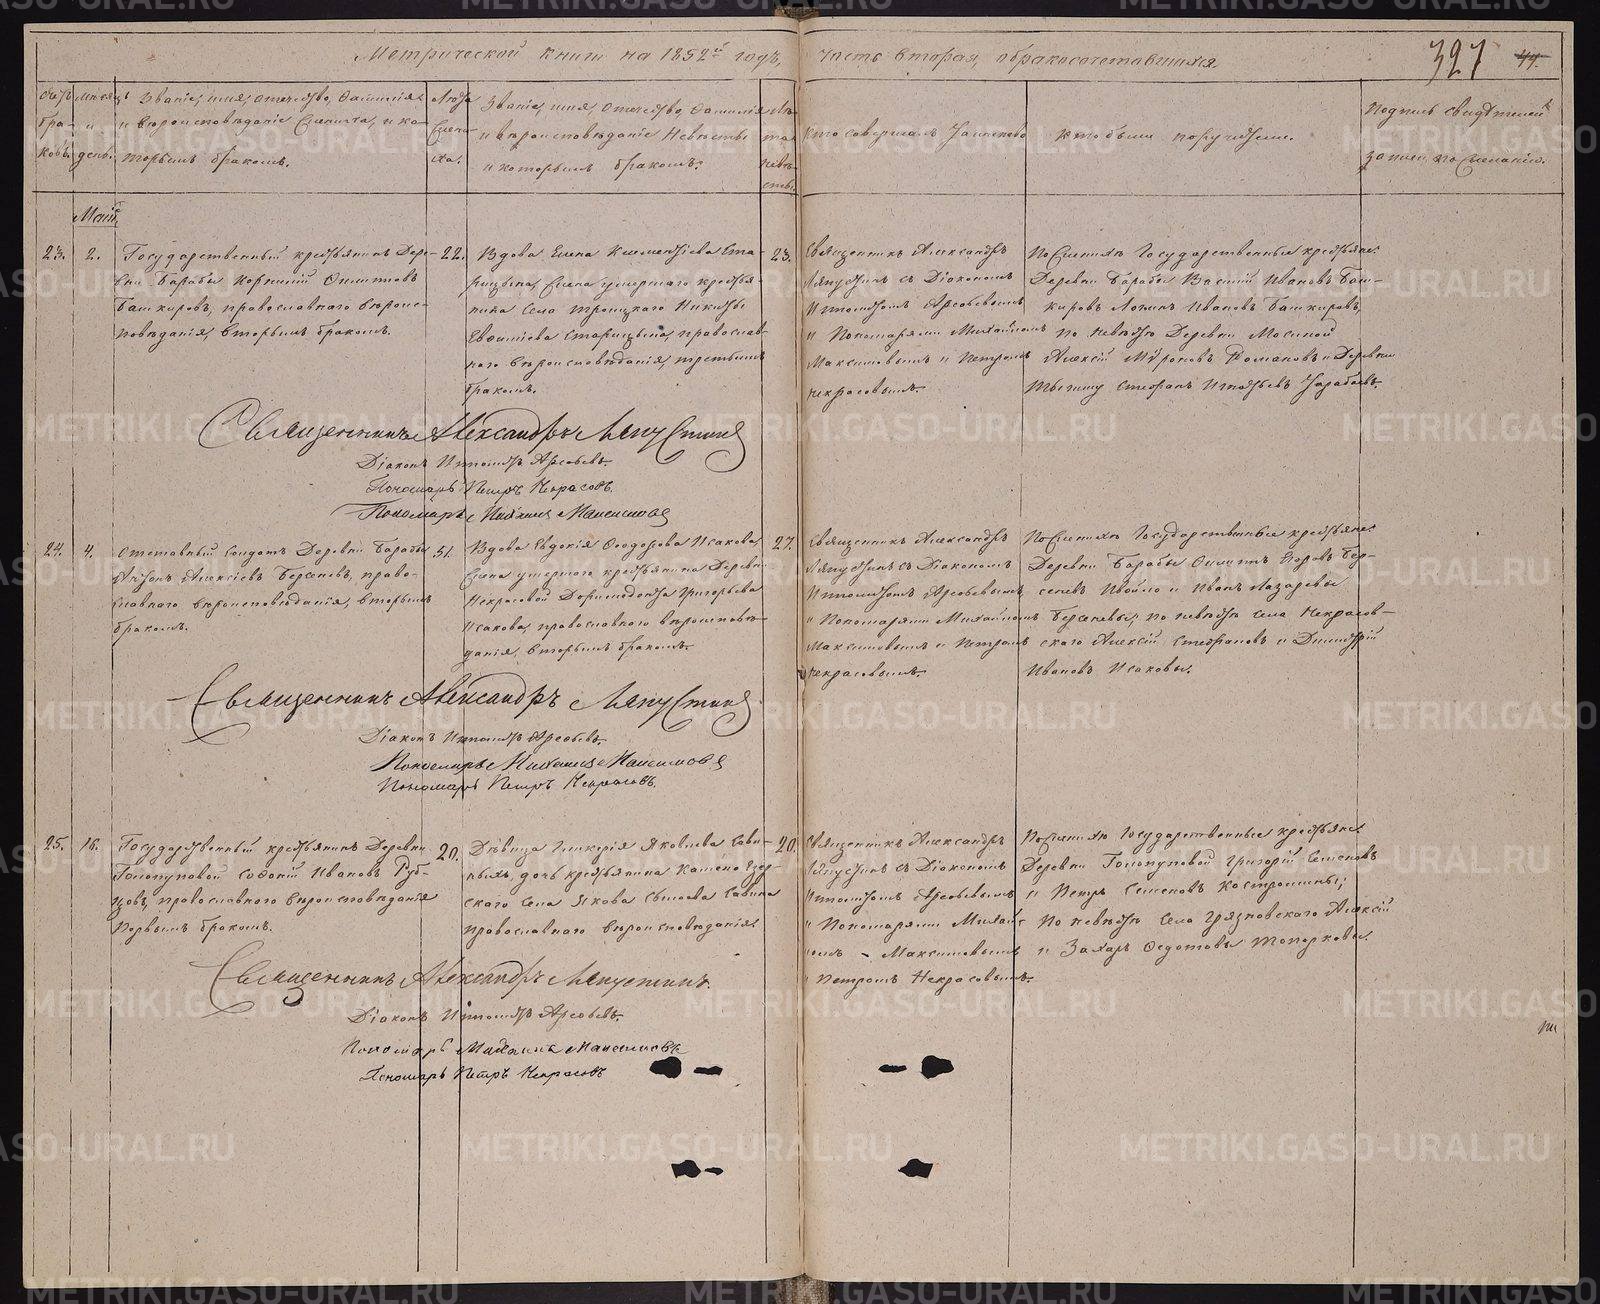 Метрической книги на 1852й годъ, часть вторая, о бракосочетавшихся.
327
44.
Счетъ браковъ.
Мѣсяцъ и день.
Званіе, имя, отчество, фамилія
и вѣроисповѣданіе жениха, и ко-
торымъ бракомъ.
Лѣта жениха.
Званіе, имя, отчество, фамилія
и вѣроисповѣданіе невѣсты
и которымъ бракомъ.
Лѣта невѣсты.
Кто совершалъ таинство
Кто были поручители.
Подпись свидѣтелей
записи по желанію.
Май.
23.
2.
Государственный крестьянинъ Дере-
вни Барабы
Башкировъ, православнаго вѣроис-
повѣданія, вторымъ бракомъ.
22.
Вдова Елена Климентіева Ста-
рицына, жена умершаго крестья-
нина села Троицкаго Никиты
Старицына, православ-
наго вѣроисповѣданія, третьимъ
бракомъ.
23.
Священникъ Александръ
Ляпустинъ съ Діакономъ
Ипполитомъ
и Пономарями Михаиломъ
Максимовымъ и Петромъ
Некрасовымъ.
По женихѣ Государственные крестьяне:
Деревни Барабы Василій Ивановъ Баш-
кировъ Логинъ Ивановъ Башкировъ,
по невѣстѣ Деревни Мосиной
Алексій Романовъ и Деревни
Стефанъ Игнатьевъ
Священникъ Александръ Ляпустинъ
Діаконъ Ипполитъ
Пономарь Петръ Некрасовъ.
Пономарь Михаилъ Максимовъ
24.
4.
Отставный солдатъ Деревни Барабы
Антонъ Алексіевъ Берсеневъ, право-
славнаго вѣроисповѣданія, вторымъ
бракомъ.
51.
Вдова Евдокія Ѳеодорова Исакова
жена умершаго крестьянина Деревни
Некрасовой Доримедонта Григорьева
Исакова, православнаго вѣроисповѣ-
данія, вторымъ бракомъ.
27.
Священникъ Александръ
Ляпустинъ съ Діакономъ
Ипполитомъ
и Пономарями Михаиломъ
Максимовымъ и Петромъ
Некрасовымъ.
По женихѣ Государственные крестьяне:
Деревни Барабы Филиппъ Егоровъ Бер-
сеневъ и Иванъ Лазаревы
Берсеневы; по невѣстѣ села Некрасов-
скаго Алексій Стефановъ и Димитрій
Ивановъ Исаковы.
Священникъ Александръ Ляпустинъ
Діаконъ Ипполитъ
Пономарь Михаилъ Максимовъ
Пономарь Петръ Некрасовъ.
25.
16.
Государственный крестьянинъ Деревни
Голопуповой Софоній Ивановъ Руб-
цовъ, православнаго вѣроисповѣданія
первымъ бракомъ.
20.
Дѣвица Гликерія Яковлева Сави-
ныхъ, дочь крестьянина Каменноозер-
скаго села Якова Савина
православнаго вѣроисповѣданія
20.
Священникъ Александръ
Ляпустинъ съ Діакономъ
Ипполитомъ
и Пономарями Михаи-
ломъ Максимовымъ
и Петромъ Некрасовымъ.
По женихѣ Государственные крестьяне:
Деревни Голопуповой Григорій Семеновъ
и Петръ Семеновъ Костромины;
по невѣстѣ села Грязновскаго Алексій
и Захаръ Федотовы Топорковы.
Священникъ Александръ Ляпустинъ.
Діаконъ Ипполитъ
Пономарь Михаилъ Максимовъ
Пономарь Петръ Некрасовъ
METRIKI.GASO-URAL.RU